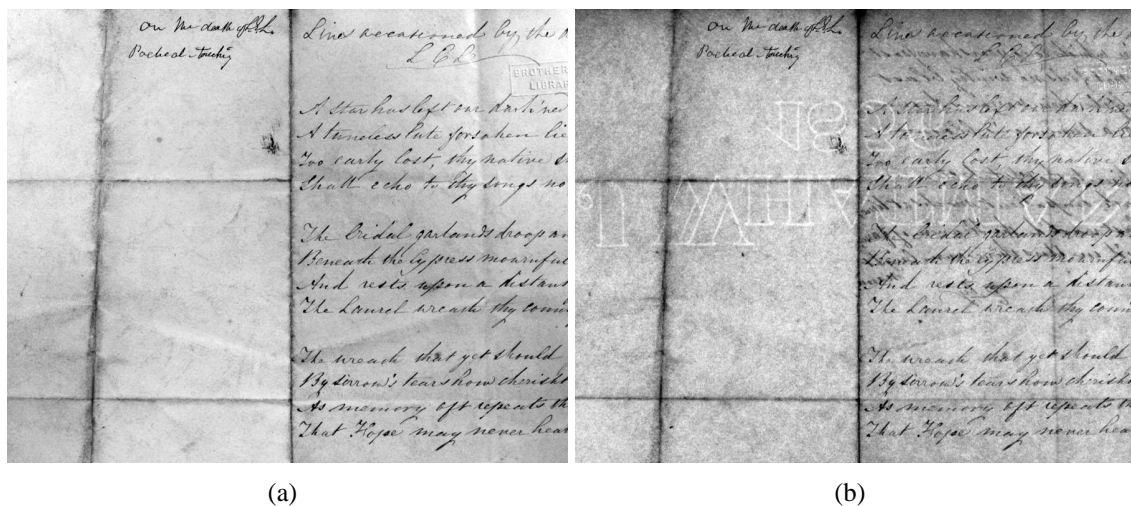 On the death of L.E.L.
Poetical
Lines occasioned by the
L E L
BROTHER
LIBRAR
A star has left our darkness
A tuneless lute forsaken lie
Too early lost, thy native s
Shall echo to thy songs no
The bridal garlands droop an
Beneath the Cypress mournful
And rests upon a distant
The Laurel wreath thy
The wreath that yet should
By sorrow's tears how cherish
As memory oft repeats th
That Hope may never hear
(a)
On the death of L.E.L.
Poetical
Lines occasioned by the
L E L
A star has left our
A tuneless lute forsaken
Too early lost, thy native s
Shall echo to thy songs no
The bridal garlands droop a
Beneath the Cypress mournfu
And rests upon a distan
The Laurel wreath thy
The wreath that yet should
By sorrow's tears how cherish
As memory oft repeats th
That Hope may never hear
(b)